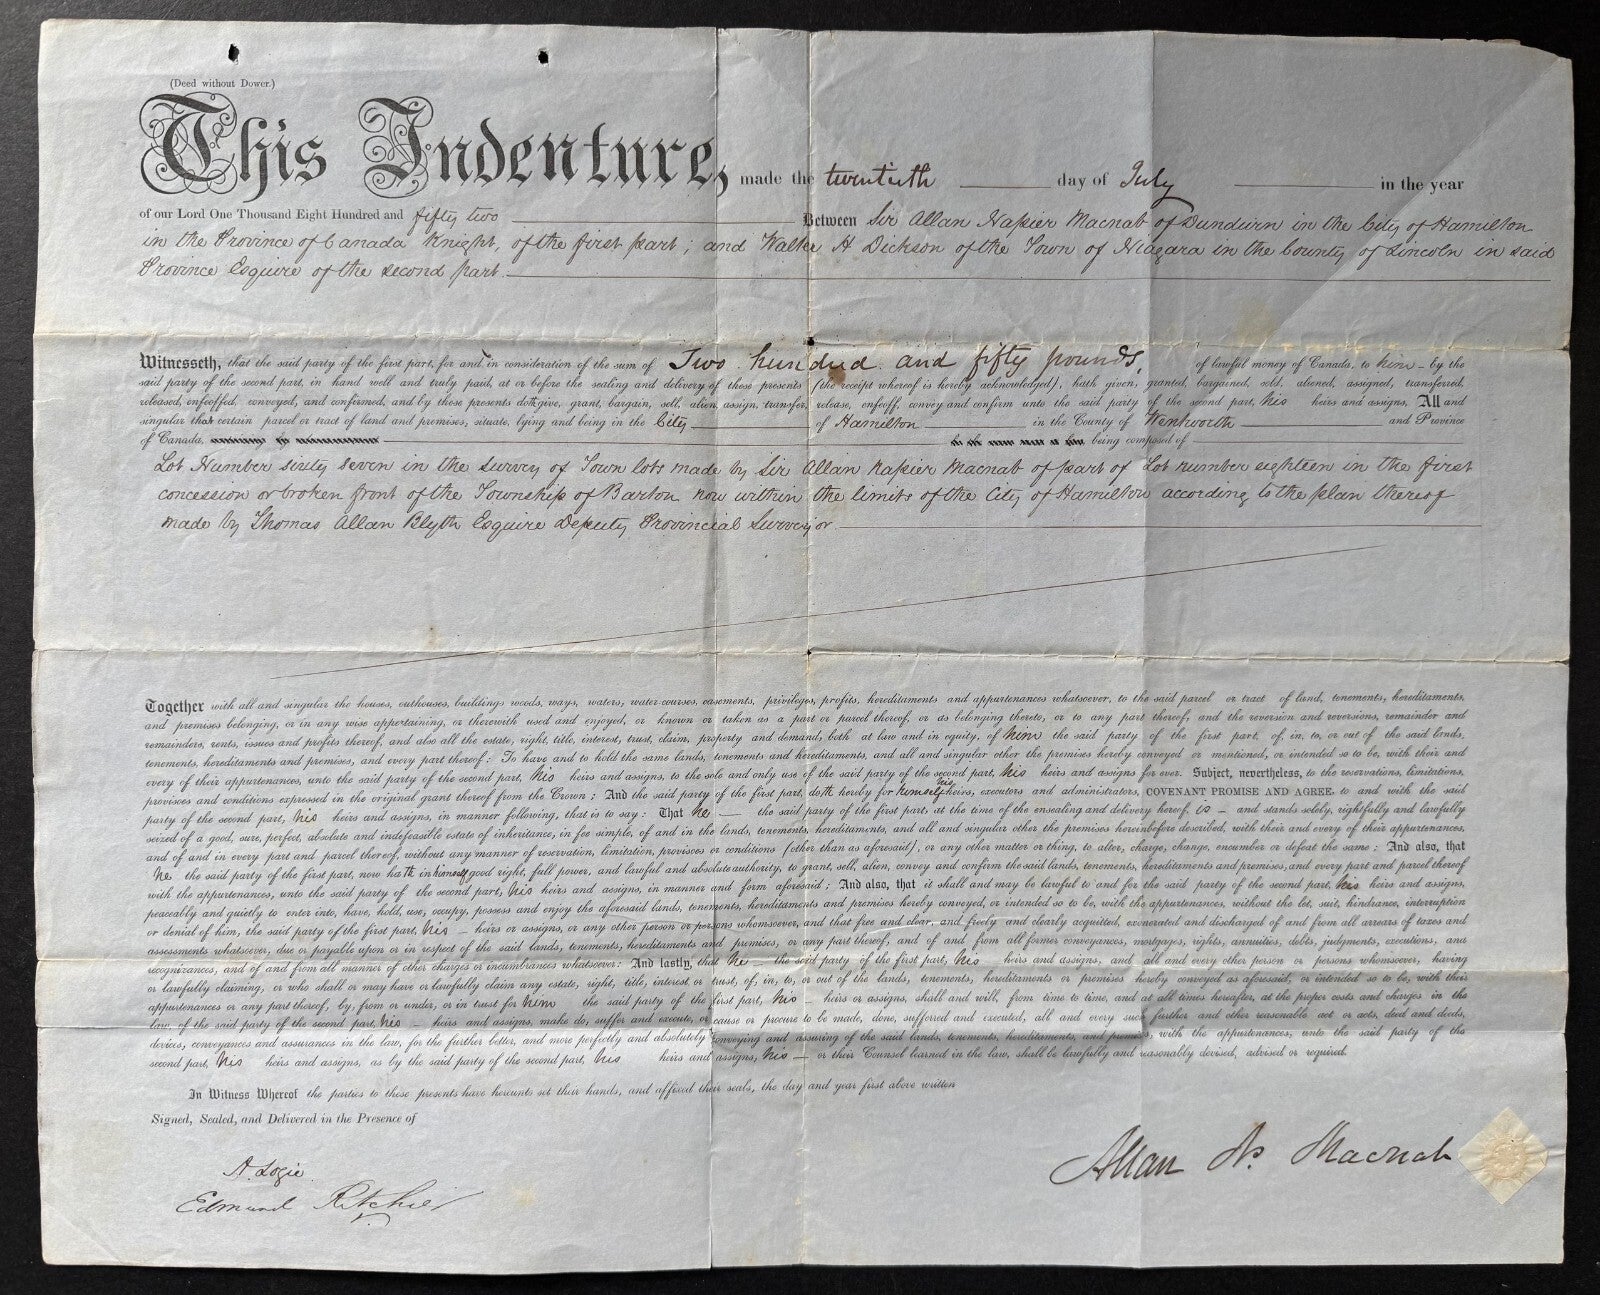 (Deed without Dower.)
This Indenture, made the twentieth day of July in the year
of our Lord One Thousand Eight Hundred and fifty two Between Sir Allan Napier Macnab of Dundurn in the City of Hamilton
in the Province of Canada Knight, of the first part; and Walter H Dickson of the Town of Niagara in the County of Lincoln in said
Province Esquire of the second part
Witnesseth, that the said party of the first part, for and in consideration of the sum of Two hundred and fifty pounds, of lawful money of Canada, to him by the
said party of the second part, in hand well and truly paid, at or before the sealing and delivery of these presents (the receipt whereof is hereby acknowledged), hath given, granted, bargained, sold, aliened, assigned, transferred,
released, enfeoffed, conveyed, and confirmed, and by these presents doth give, grant, bargain, sell, alien, assign, transfer, release, enfeoff, convey and confirm unto the said party of the second part, his heirs and assigns, All and
singular that certain parcel or tract of land and premises, situate, lying and being in the City of Hamilton in the County of Wentworth and Province
of Canada, being composed of
Lot Number sixty seven in the survey of Town lots made by Sir Allan Napier Macnab of part of Lot number eighteen in the first
concession or broken front of the Township of Barton now within the limits of the City of Hamilton according to the plan thereof
made by Thomas Allan Blyth Esquire Deputy Provincial Surveyor
Together with all and singular the houses, outhouses, buildings woods, ways, waters, water-courses, easements, privileges, profits, hereditaments and appurtenances whatsoever, to the said parcel or tract of land, tenements, hereditaments,
and premises belonging, or in any wise appertaining, or therewith used and enjoyed, or known or taken as a part or parcel thereof, or as belonging thereto, or to any part thereof; and the reversion and reversions, remainder and
remainders, rents, issues and profits thereof, and also all the estate, right, title, interest, trust, claim, property and demand, both at law and in equity, of him the said party of the first part, of, in, to, or out of the said lands,
tenements, hereditaments and premises, and every part thereof: To have and to hold the same lands, tenements and hereditaments, and all and singular other the premises hereby conveyed or mentioned, or intended so to be, with their and
every of their appurtenances, unto the said party of the second part, his heirs and assigns, to the sole and only use of the said party of the second part, his heirs and assigns for ever. Subject, nevertheless, to the reservations, limitations,
provisoes and conditions expressed in the original grant thereof from the Crown; And the said party of the first part, doth hereby for himself his heirs, executors and administrators, COVENANT PROMISE AND AGREE, to and with the said
party of the second part, his heirs and assigns, in manner following, that is to say: That he the said party of the first part, at the time of the ensealing and delivery hereof, is and stands solely, rightfully and lawfully
seized of a good, sure, perfect, absolute and indefeasible estate of inheritance, in fee simple, of and in the lands, tenements, hereditaments, and all and singular other the premises hereinbefore described, with their and every of their appurtenances,
and of and in every part and parcel thereof, without any manner of reservation, limitation, provisoes or conditions (other than as aforesaid), or any other matter or thing, to alter, charge, change, encumber or defeat the same: And also, that
he the said party of the first part, now hath in himself good right, full power, and lawful and absolute authority, to grant, sell, alien, convey and confirm the said lands, tenements, hereditaments and premises, and every part and parcel thereof
with the appurtenances, unto the said party of the second part, his heirs and assigns, in manner and form aforesaid; And also, that it shall and may be lawful to and for the said party of the second part, his heirs and assigns,
peaceably and quietly to enter into, have, hold, use, occupy, possess and enjoy the aforesaid lands, tenements, hereditaments and premises hereby conveyed, or intended so to be, with the appurtenances, without the let, suit, hindrance, interruption
or denial of him, the said party of the first part, his heirs or assigns, or any other person or persons whomsoever, and that free and clear, and freely and clearly acquitted, exonerated and discharged of and from all arrears of taxes and
assessments whatsoever, due or payable upon or in respect of the said lands, tenements, hereditaments and premises, or any part thereof, and of and from all former conveyances, mortgages, rights, annuities, debts, judgments, executions, and
recognizances, and of and from all manner of other charges or incumbrances whatsoever: And lastly, that he the said party of the first part, his heirs and assigns, and all and every other person or persons whomsoever, having
or lawfully claiming, or who shall or may have or lawfully claim any estate, right, title, interest or trust, of, in, to, or out of the lands, tenements, hereditaments or premises hereby conveyed as aforesaid, or intended so to be, with their
appurtenances or any part thereof, by, from or under, or in trust for him the said party of the first part, his heirs or assigns, shall and will, from time to time, and at all times hereafter, at the proper costs and charges in the
law of the said party of the second part, his heirs and assigns, make do, suffer and execute, or cause or procure to be made, done, suffered and executed, all and every such further and other reasonable act or acts, deed and deeds,
devices, conveyances and assurances in the law, for the further better, and more perfectly and absolutely conveying and assuring of the said lands, tenements, hereditaments, and premises, with the appurtenances, unto the said party of the
second part, his heirs and assigns, as by the said party of the second part, his heirs and assigns, his or their Counsel learned in the law, shall be lawfully and reasonably devised, advised or required.
In Witness Whereof the parties to these presents have hereunto set their hands, and affixed their seals, the day and year first above written
Signed, Sealed, and Delivered in the Presence of
A. Logie.
Edmund Ritchie
Allan N. Macnab